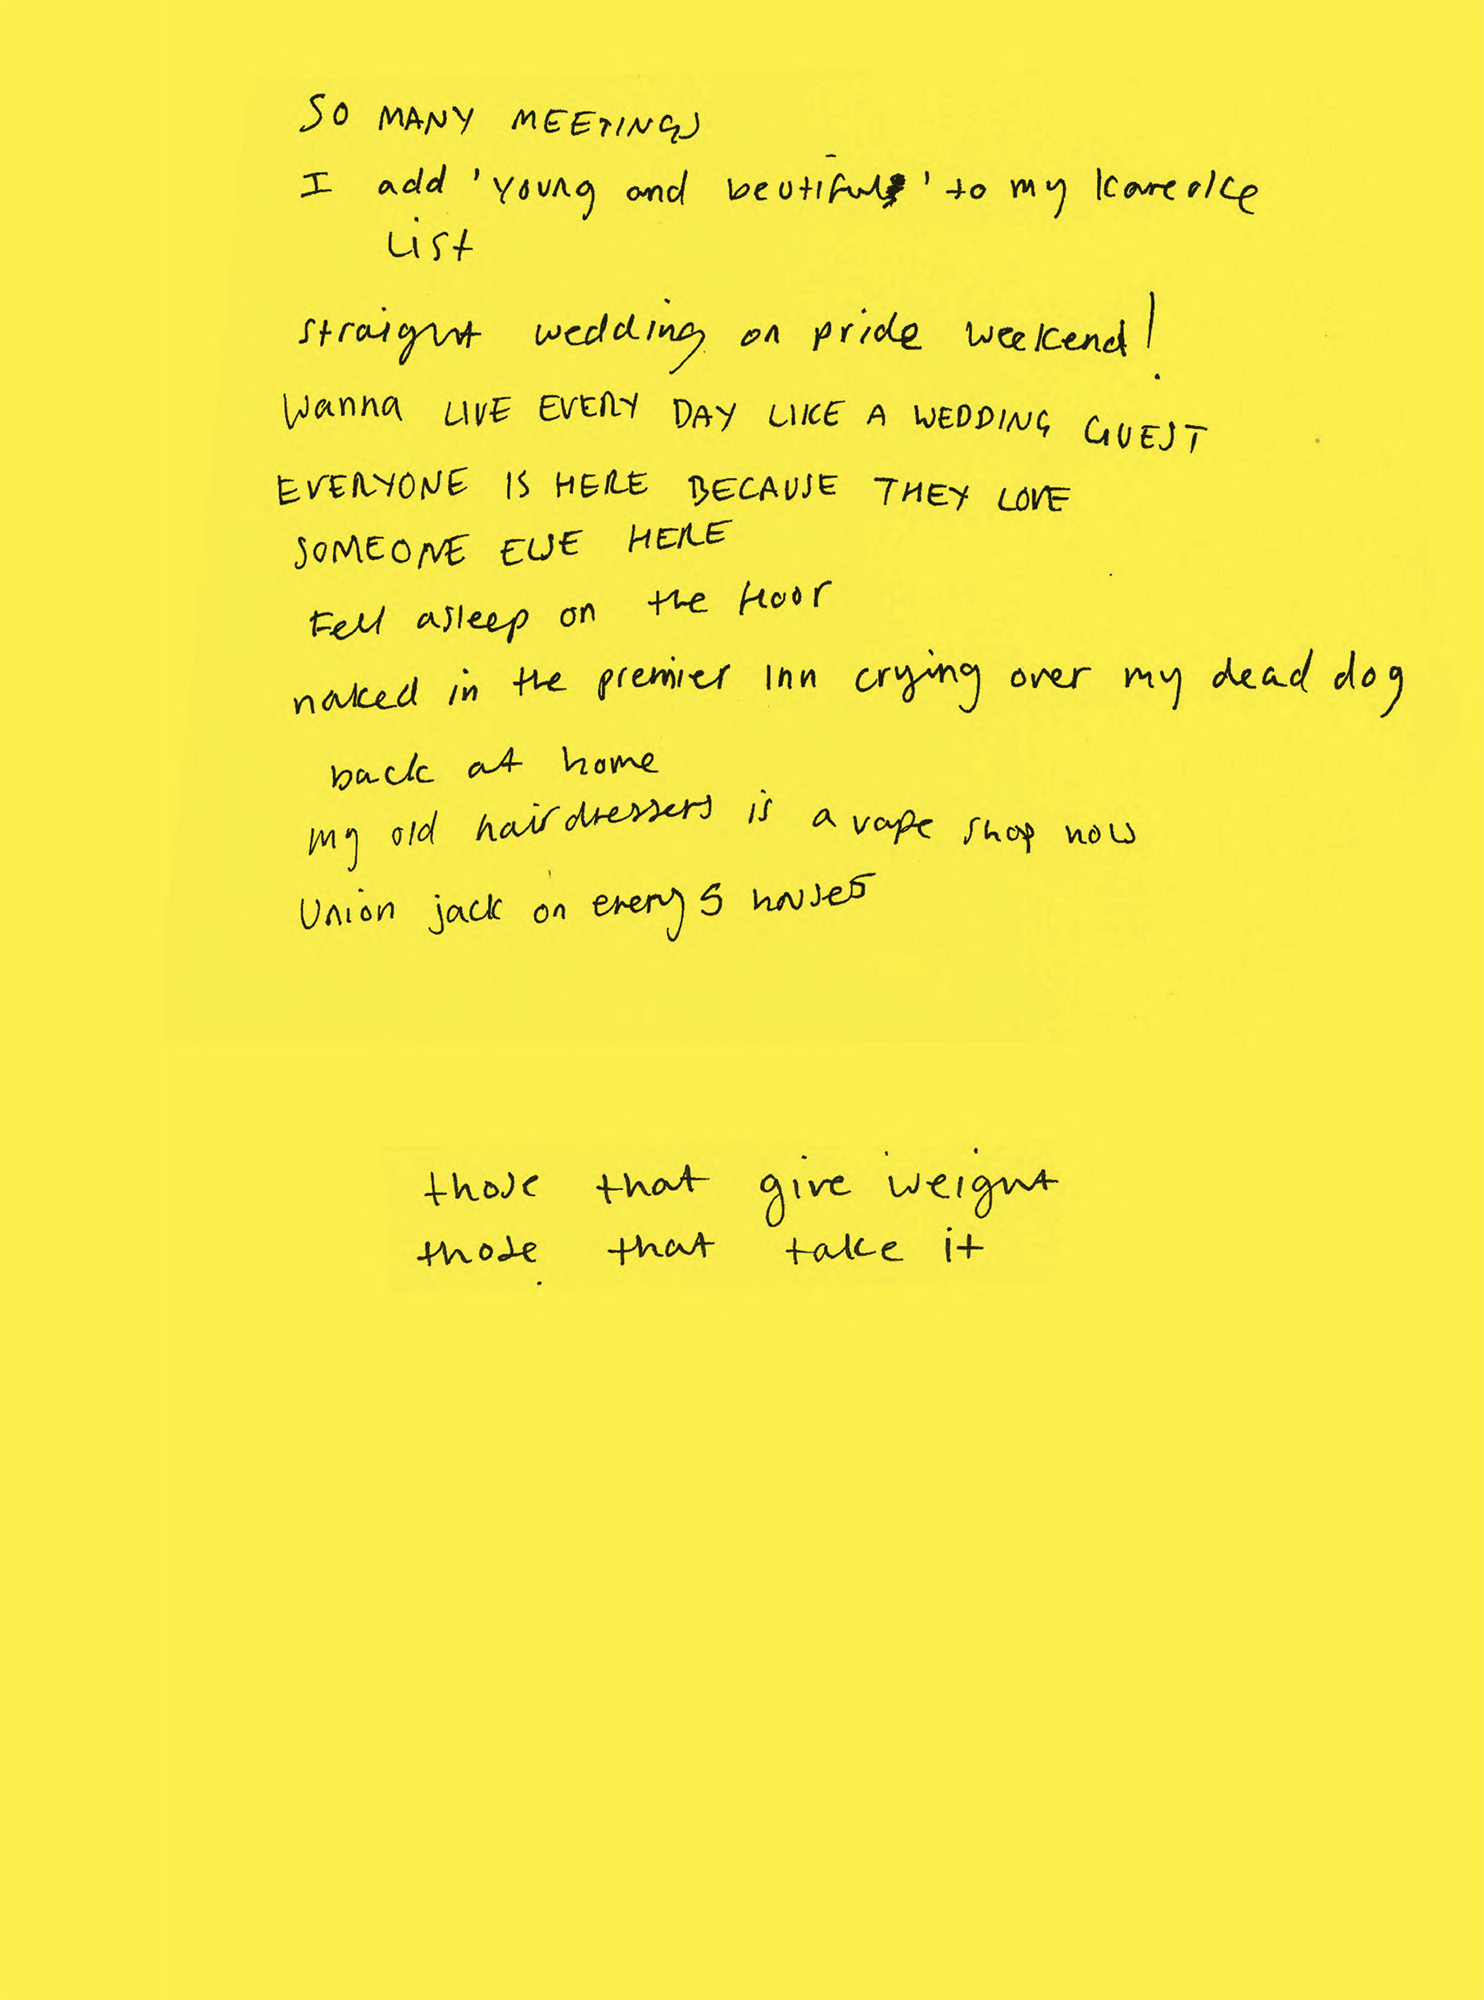 SO MANY MEETINGS
I add 'young and beutiful' to my kareoke
List
straight wedding on pride weekend!
Wanna LIVE EVERY DAY LIKE A WEDDING GUEST
EVERYONE IS HERE BECAUSE THEY LOVE
SOMEONE ELSE HERE
Fell asleep on the floor
naked in the premier Inn crying over my dead dog
back at home
my old hairdressers is a vape shop now
Union jack on every 5 houses
those that give weight
those that take it